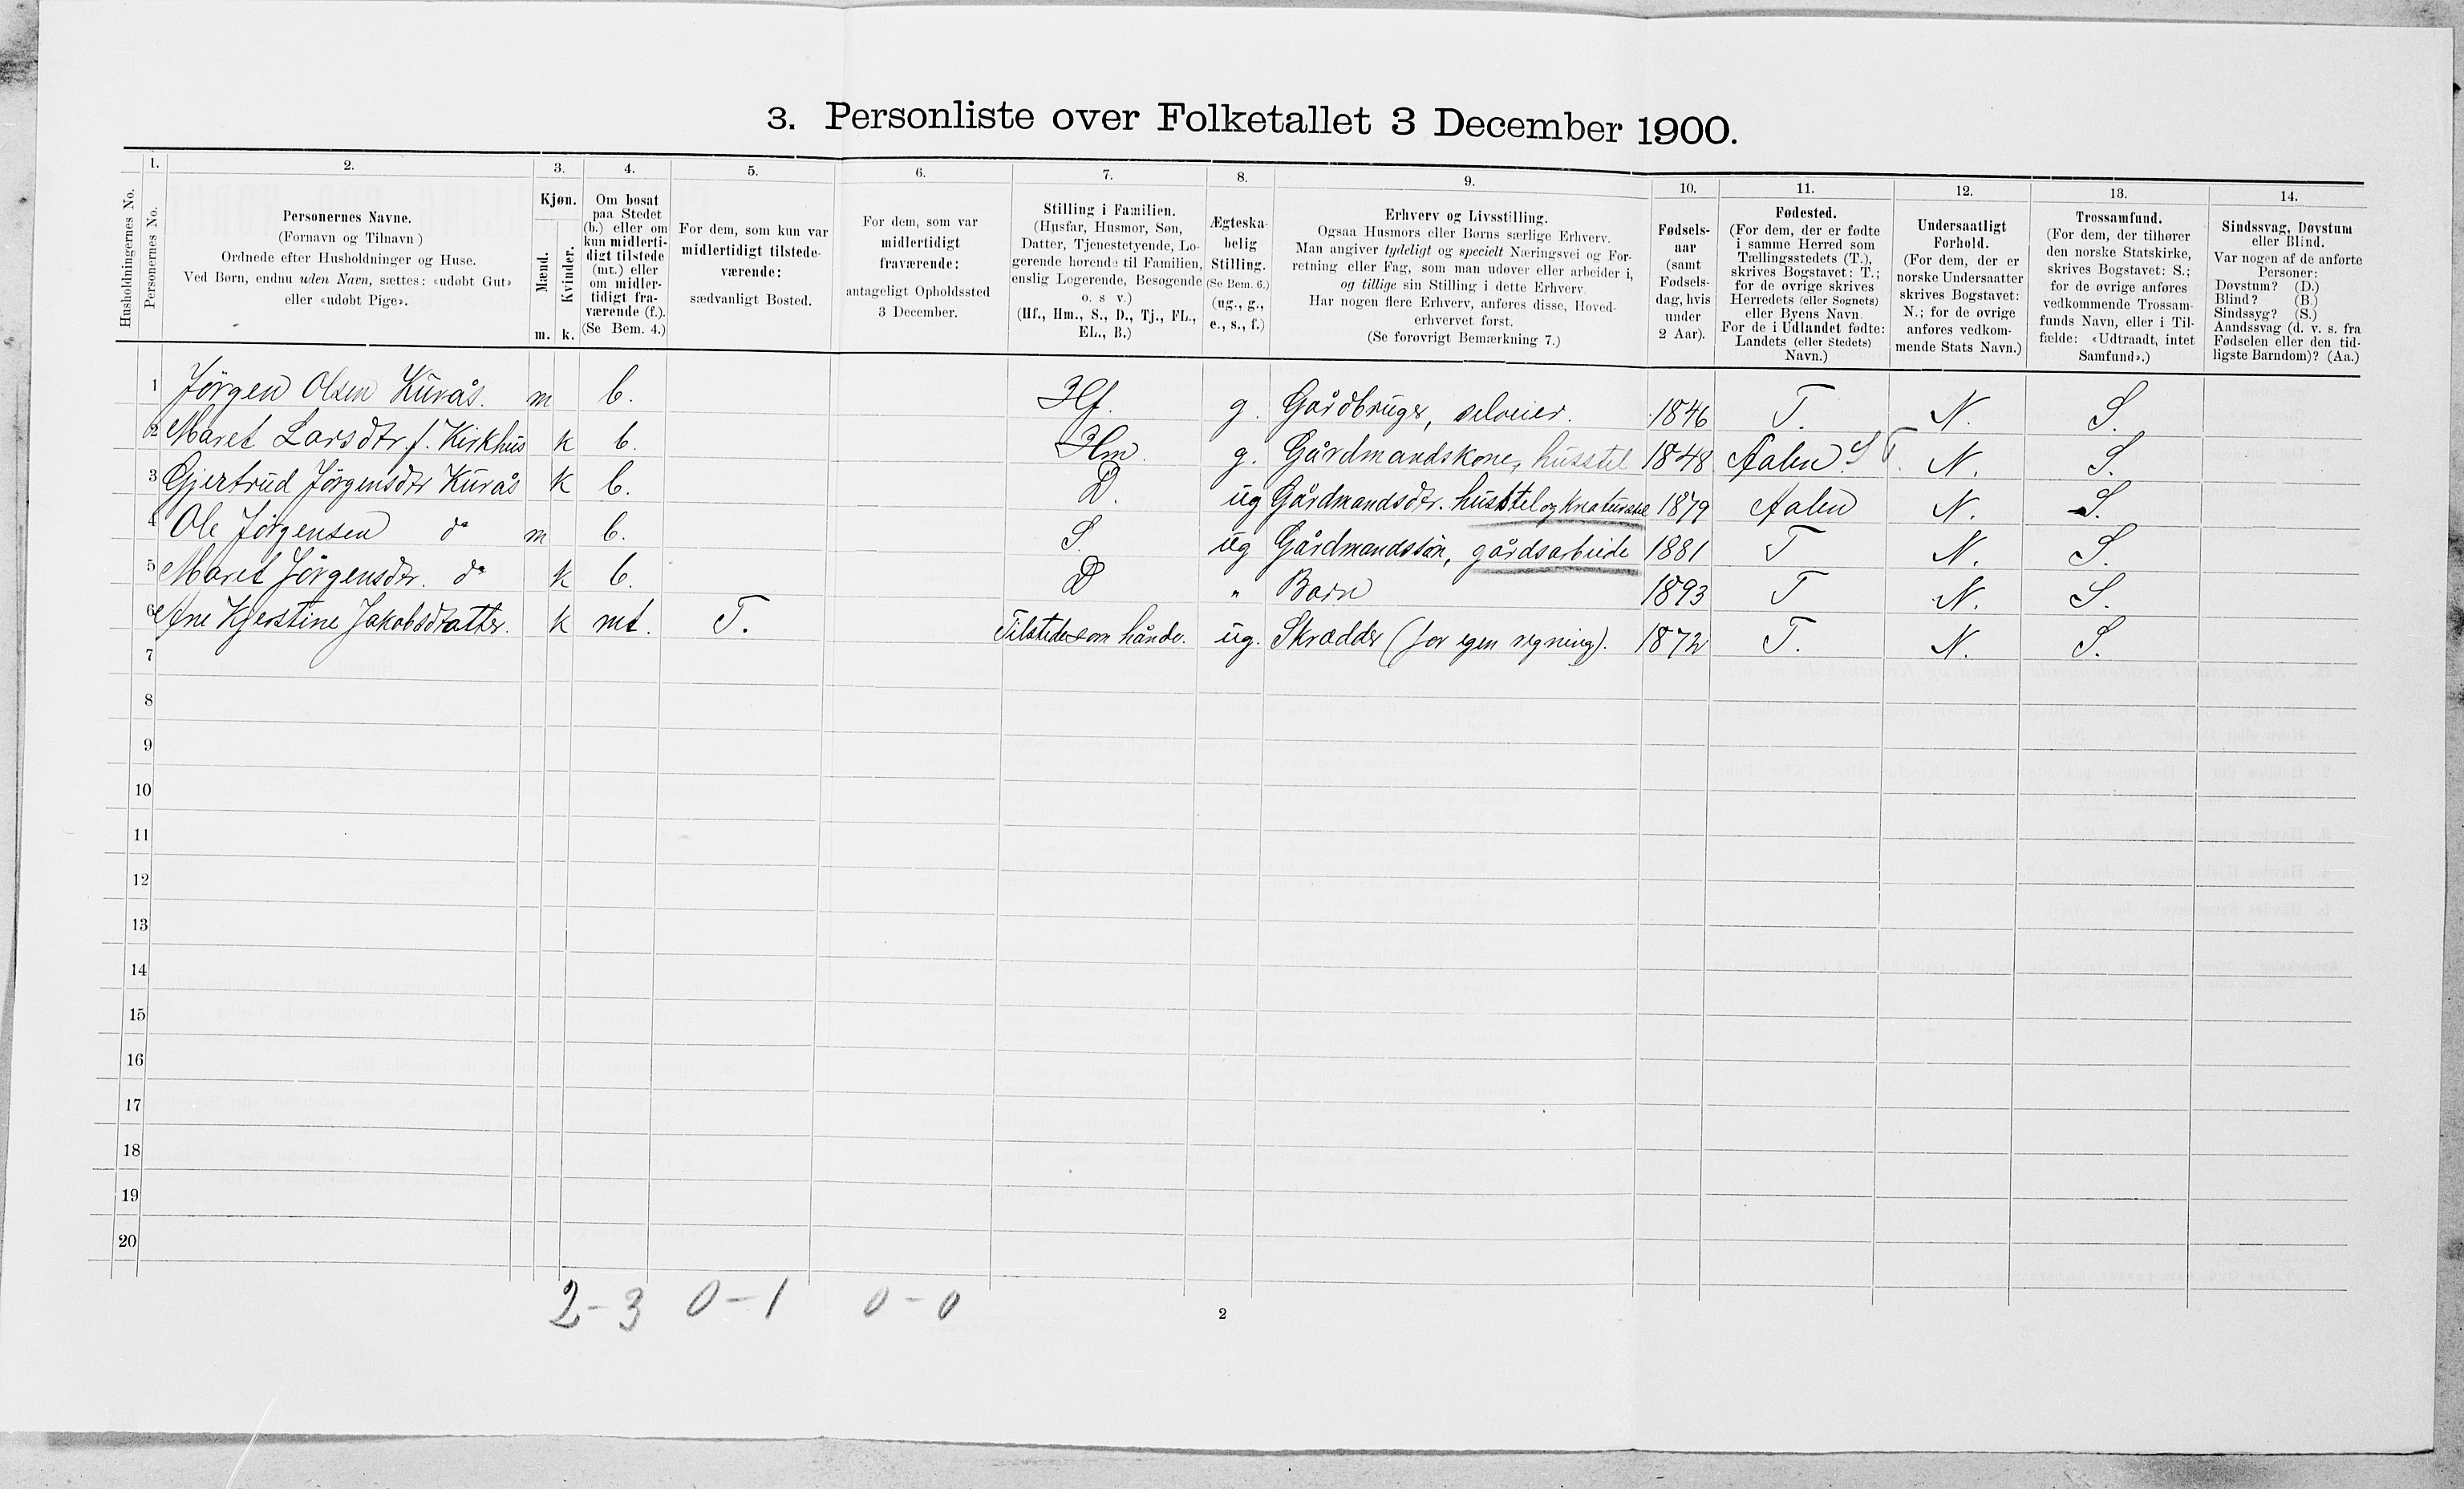 3. Personliste over Folketallet 3 December 1900.
1. 2. 3. 4. 5. 6. 7. 8. 9. 10. 11. 12. 13. 14.
Husholdningernes No.
Personernes No.
Personernes Navne.
(Fornavn og Tilnavn)
Ordnede efter Husholdninger og Huse.
Ved Børn, endnu uden Navn, sættes: «udøbt Gut»
eller «udøbt Pige».
Kjøn.
Mænd.
Kvinder.
m. k.
Om bosat
paa Stedet
(b.) eller om
kun midlerti-
digt tilstede
(mt.) eller
om midler-
tidigt fra-
værende (f.).
(Se Bem. 4.)
For dem, som kun var
midlertidigt tilstede-
værende:
sædvanligt Bosted.
For dem, som var
midlertidigt
fraværende:
antageligt Opholdssted
3 December.
Stilling i Familien.
(Husfar, Husmor, Søn,
Datter, Tjenestetyende, Lo-
gerende hørende til Familien,
enslig Logerende, Besøgende
o. s v.)
(Hf., Hm., S., D., Tj., FL.,
EL., B.)
Ægteska-
belig
Stilling.
(Se Bem. 6.)
(ug., g.,
e., s., f.)
Erhverv og Livsstilling.
Ogsaa Husmors eller Børns særlige Erhverv.
Man angiver tydeligt og specielt Næringsvei og For-
retning eller Fag, som man udøver eller arbeider i,
og tillige sin Stilling i dette Erhverv.
Har nogen flere Erhverv, anføres disse, Hoved-
erhvervet først.
(Se forøvrigt Bemærkning 7.)
Fødsels-
aar
(samt
Fødsels-
dag, hvis
under
2 Aar).
Fødested.
(For dem, der er fødte
i samme Herred som
Tællingsstedets (T.),
skrives Bogstavet: T.;
for de øvrige skrives
Herredets (eller Sognets)
eller Byens Navn.
For de i Udlandet fødte:
Landets (eller Stedets)
Navn.)
Undersaatligt
Forhold.
(For dem, der er
norske Undersaatter
skrives Bogstavet:
N.; for de øvrige
anføres vedkom-
mende Stats Navn.)
Trossamfund.
(For dem, der tilhører
den norske Statskirke,
skrives Bogstavet: S.;
for de øvrige anføres
vedkommende Trossam-
funds Navn, eller i Til-
fælde: «Udtraadt, intet
Samfund».)
Sindssvag, Døvstum
eller Blind.
Var nogen af de anførte
Personer:
Døvstum? (D.)
Blind? (B.)
Sindssyg? (S.)
Aandssvag (d. v. s. fra
Fødselen eller den tid-
ligste Barndom)? (Aa.)
1 Jörgen Olsen Kurås. m b. Hf. g. Gårdbruger, selveier. 1846 T. N. S.
2 Maret Larsdtr f. Kirkhus k b. Hm. g. Gårdmandskone, husstel 1848 Aalen. S T. N. S.
3 Gjertrud Jörgensdtr Kurås k b. D. ug Gårdmandsdtr. husstel og kreaturstel 1879 Aalen N. S.
4 Ole Jörgensen do m b. S. ug Gårdmandssön, gårdsarbeide 1881 T N. S.
5 Maret Jörgensdtr. do k b. D " Barn 1893 T N. S.
6 Ane Kjerstine Jakobsdatter. k mt. T. Tilstede som håndv. ug. Skrædder (for egen regning). 1872 T. N. S.
7
8
9
10
11
12
13
14
15
16
17
18
19
20
2-3 0-1 0-0
2